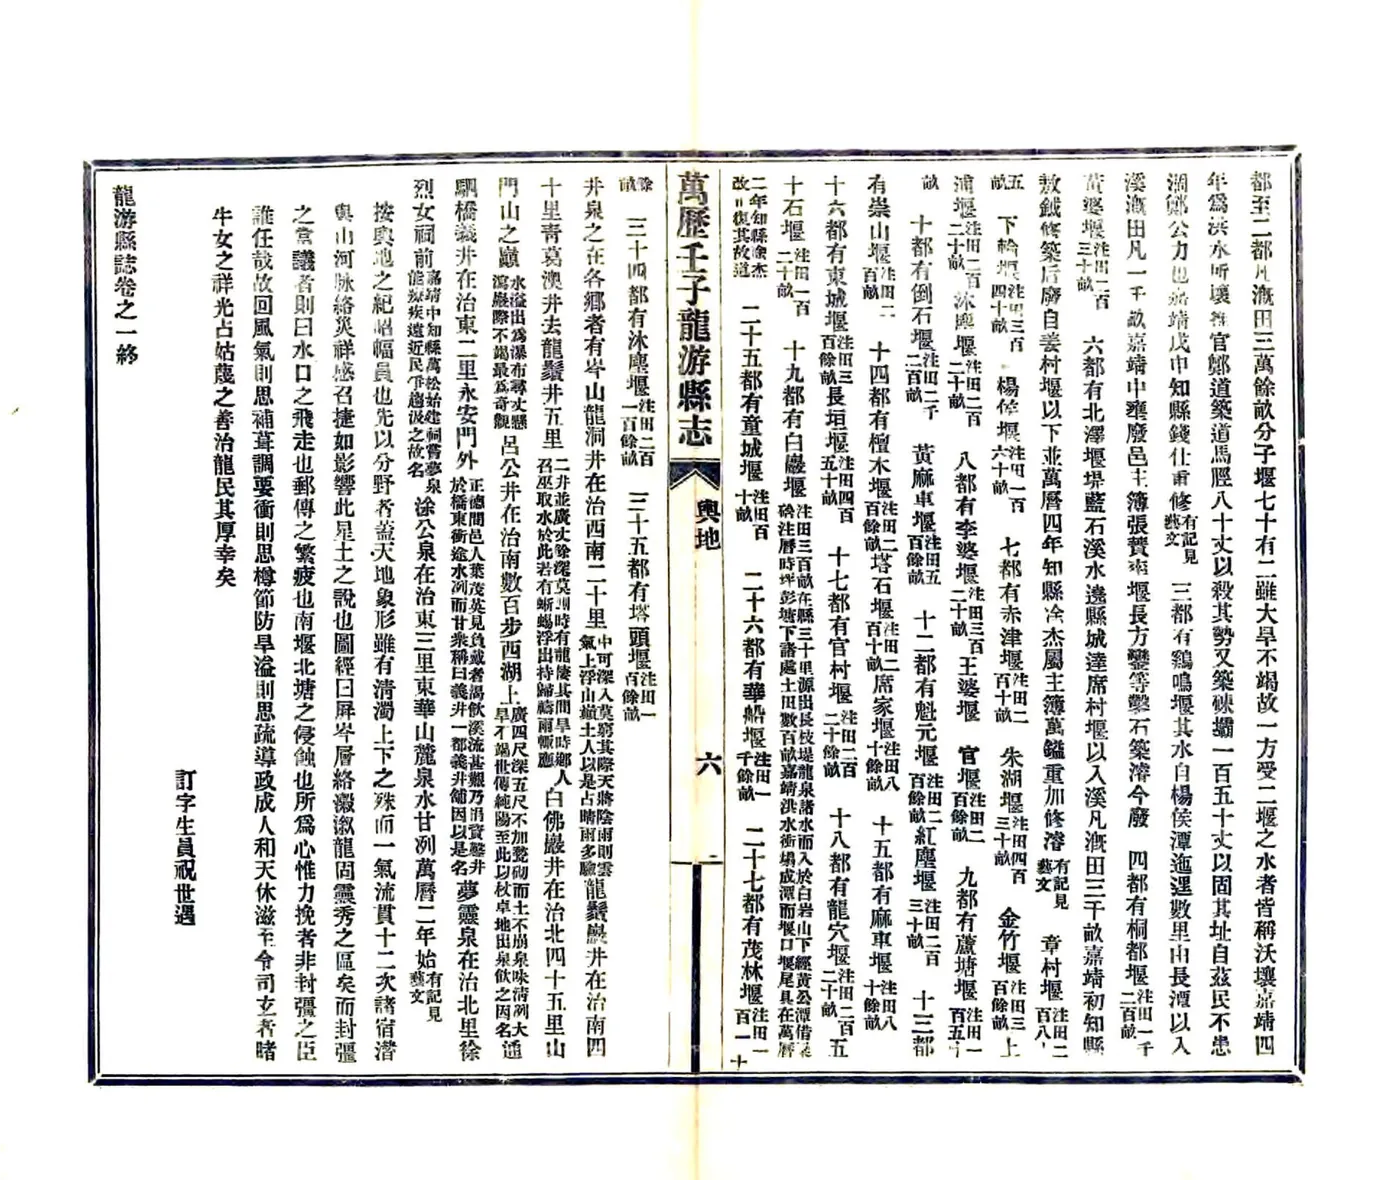 都至二都凡漑田三萬餘畝分子堰七十有二雖大旱不竭故一方受二堰之水者皆稱沃壤嘉靖四
年爲洪水所壞推官鄭道築道馬脛八十丈以殺其勢又築磉壩一百五十丈以固其址自茲民不患
涸鄭公力也嘉靖戊申知縣錢仕重修有記見藝文 三都有鷄鳴堰其水自楊侯潭迤邐數里由長潭以入
溪漑田凡一千畝嘉靖中壅廢邑主簿張贊率堰長方鑾等鑿石築濬今廢 四都有桐都堰注田一千二百畝
黃婆堰注田一百三十畝 六都有北澤堰堤藍石溪水遶縣城達席村堰以入溪凡漑田三千畝嘉靖初知縣
敖鉞修築后廢自姜村堰以下並萬曆四年知縣凃杰屬主簿萬鎰重加修濬有記見藝文 章村堰注田二百八
五畝 下幹堰注田三百四十畝 楊倅堰注田一百六十畝 七都有赤津堰注田二百十畝 朱湖堰注田四百三十畝 金竹堰注田三百餘畝 上
浦堰注田二百二十畝 沐塵堰注田二百二十畝 八都有李婆堰注田三百二十畝 王婆堰 官堰注田二百餘畝 九都有蘆塘堰注田一百五十
畝 十都有倒石堰注田二千二百畝 黃麻車堰注田五百餘畝 十二都有魁元堰注田二百餘畝 紅塵堰注田二百三十畝 十三都
有崇山堰注田二百畝 十四都有檀木堰注田二百餘畝 塔石堰注田二百十畝 席家堰注田八十餘畝 十五都有麻車堰注田八十餘畝
十六都有東城堰注田三百餘畝 長垣堰注田四百五十畝 十七都有官村堰注田二百二十餘畝 十八都有龍穴堰注田二百五二十畝
十石堰注田一百二十畝 十九都有白巖堰注田三百畝在縣三十里源出長枝堤龍泉諸水而入於白岩山下經黃公潭借 注曆時坪彭塘下諸處土田數百畝嘉靖洪水衝塌成潭而堰口堰尾具在萬曆
二年知縣凃杰改 復其故道 二十五都有童城堰注田百十畝 二十六都有華船堰注田一千餘畝 二十七都有茂林堰注田一百一十
萬歷壬子龍游縣志 輿地 六
餘畝 三十四都有沐塵堰注田二百一百餘畝 三十五都有塔頭堰注田一百餘畝
井泉之在各鄉者有岑山龍洞井在治西南二十里中可深入莫窮其際天將陰雨則雲氣上浮山嶺土人以是占晴雨多驗 龍鬚巖井在治南四
十里靑葛澳井去龍鬚井五里二井並廣丈餘深莫測時有龍棲其間旱時鄕人召巫取水於此若有蜥蜴浮出持歸禱雨輒應 白佛巖井在治北四十五里山
門山之巓水溢出爲瀑布尋丈懸瀉巖際不竭最爲奇觀 呂公井在治南數百步西湖上廣四尺深五尺不加甃砌而土不崩泉味淸冽大旱不竭世傳純陽至此以杖卓地出泉飮之因名 通
駟橋義井在治東二里永安門外正德間邑人葉茂英見負戴者渴飮溪流甚艱乃捐資鑿井於橋東衝途水冽而甘衆稱曰義井一都義井舖因以是名 夢靈泉在治北里徐
烈女祠前嘉靖中知縣萬松始建祠嘗夢泉能療疾遠近民爭趨汲之故名 凃公泉在治東三里東華山麓泉水甘冽萬曆二年始有記見藝文
按輿地之紀 幅員也先以分野者蓋天地象形雖有淸濁上下之殊而一氣流貫十二次諸宿濳
與山河脉絡災祥感召捷如影響此星土之說也圖經曰屏岑層絡瀫溆龍固靈秀之區矣而封疆
之當議者則曰水口之飛走也郵傳之繁疲也南堰北塘之侵蝕也所爲心惟力挽者非封疆之臣
誰任哉故回風氣則思補葺調要衝則思樽節防旱溢則思疏導政成人和天休滋至令司玄者睹
牛女之祥光占姑蔑之善治龍民其厚幸矣
訂字生員祝世遇
龍游縣誌卷之一終